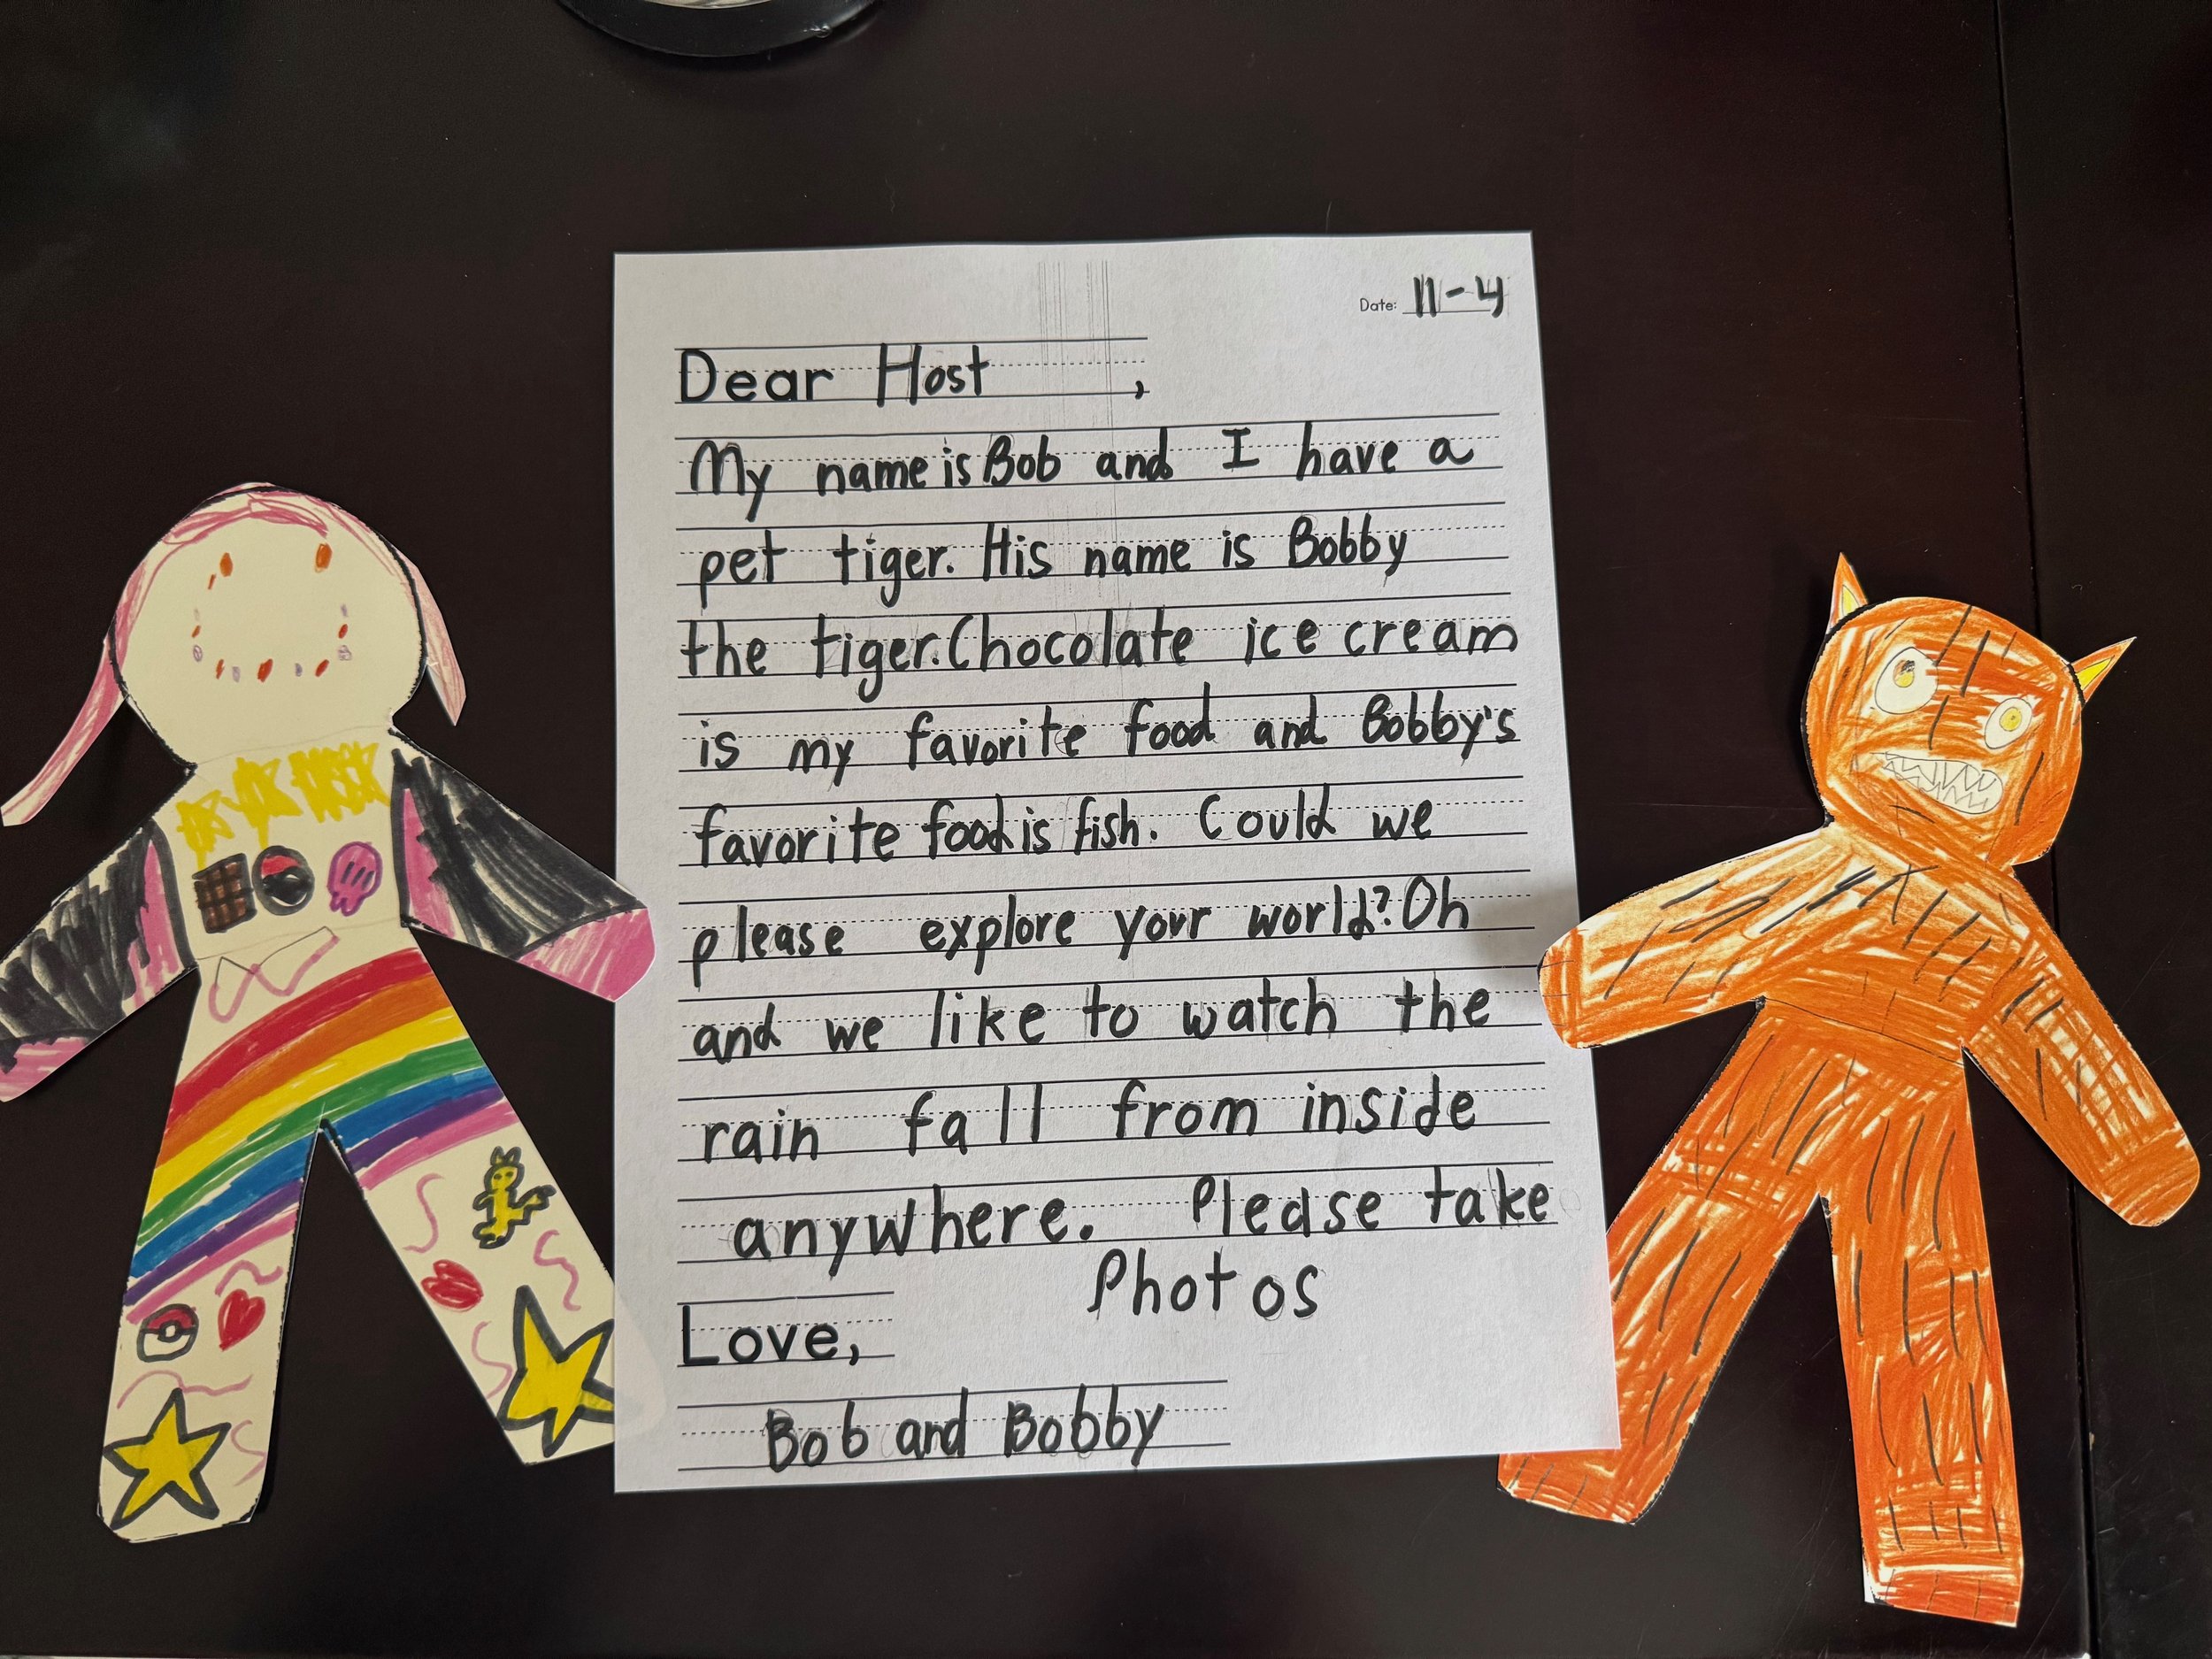 Date: 11-4
Dear Host ,
My name is Bob and I have a
pet tiger. His name is Bobby
the tiger. Chocolate ice cream
is my favorite food and Bobby's
favorite food is fish. Could we
please explore your world? Oh
and we like to watch the
rain fall from inside
anywhere. Please take
Photos
Love,
Bob and Bobby